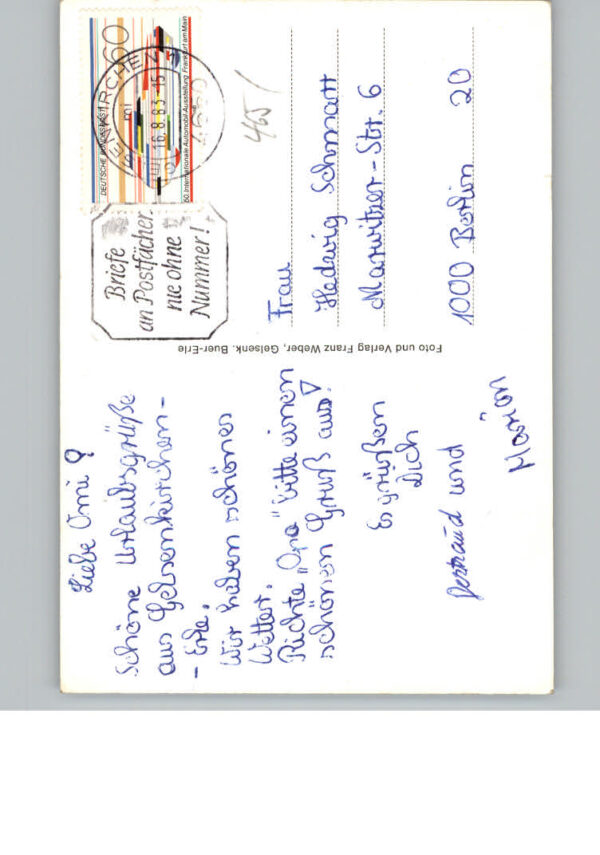 Liebe Omi!
Schöne Urlaubsgrüße
aus Gelsenkirchen-
- Erle.
Wir haben schönes
Wetter.
Richte „Opa" bitte einen
schönen Gruß aus!
Es grüßen
Dich
und
Marion
Foto und Verlag Franz Weber, Gelsenk. Buer-Erle
Briefe
an Postfächer
nie ohne
Nummer!
DEUTSCHE BUNDESPOST
60
50. Internationale Automobil-Ausstellung Frankfurt am Main
16.8.83-15
465/
Frau
Hedwig Schmatt
Marwitzer-Str. 6
1000 Berlin 20